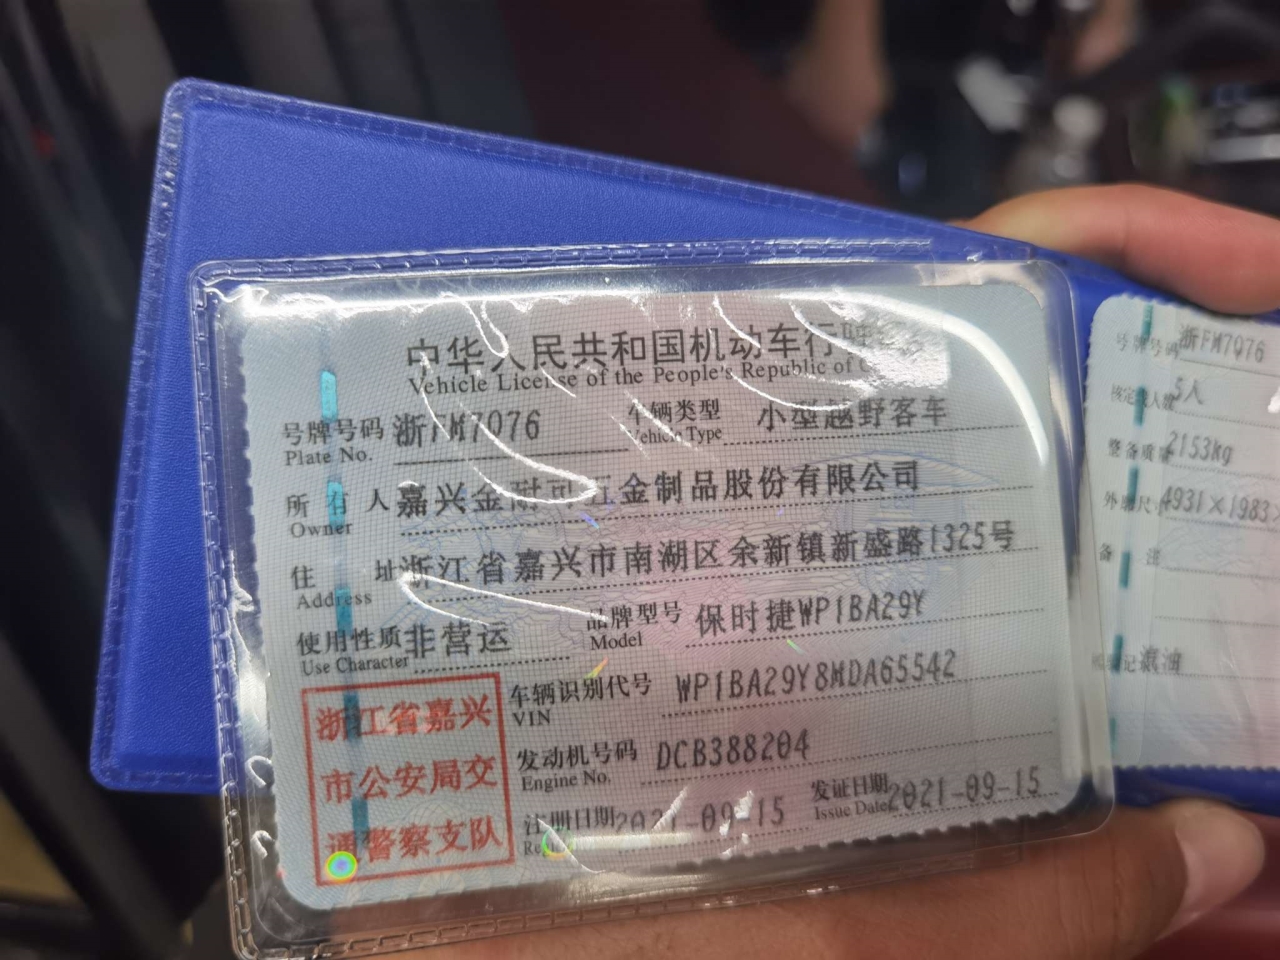 中华人民共和国机动车行
Vehicle License of the People's Republic of
号牌号码 浙FM7076 车辆类型 小型越野客车
Plate No. Vehicle Type
所有人 嘉兴金耐可五金制品股份有限公司
Owner
住址 浙江省嘉兴市南湖区余新镇新盛路1325号
Address
使用性质 非营运 品牌型号 保时捷WP1BA29Y
Use Character Model
车辆识别代号 WP1BA29Y8MDA65542
VIN
发动机号码 DCB388204
Engine No.
注册日期 2021-09-15 发证日期 2021-09-15
Issue Date
浙江省嘉兴
市公安局交
通警察支队
号牌号码 浙FM7076
核定载人数 5人
整备质量 2153kg
外廓尺 4931×1983
备注
记 汽油